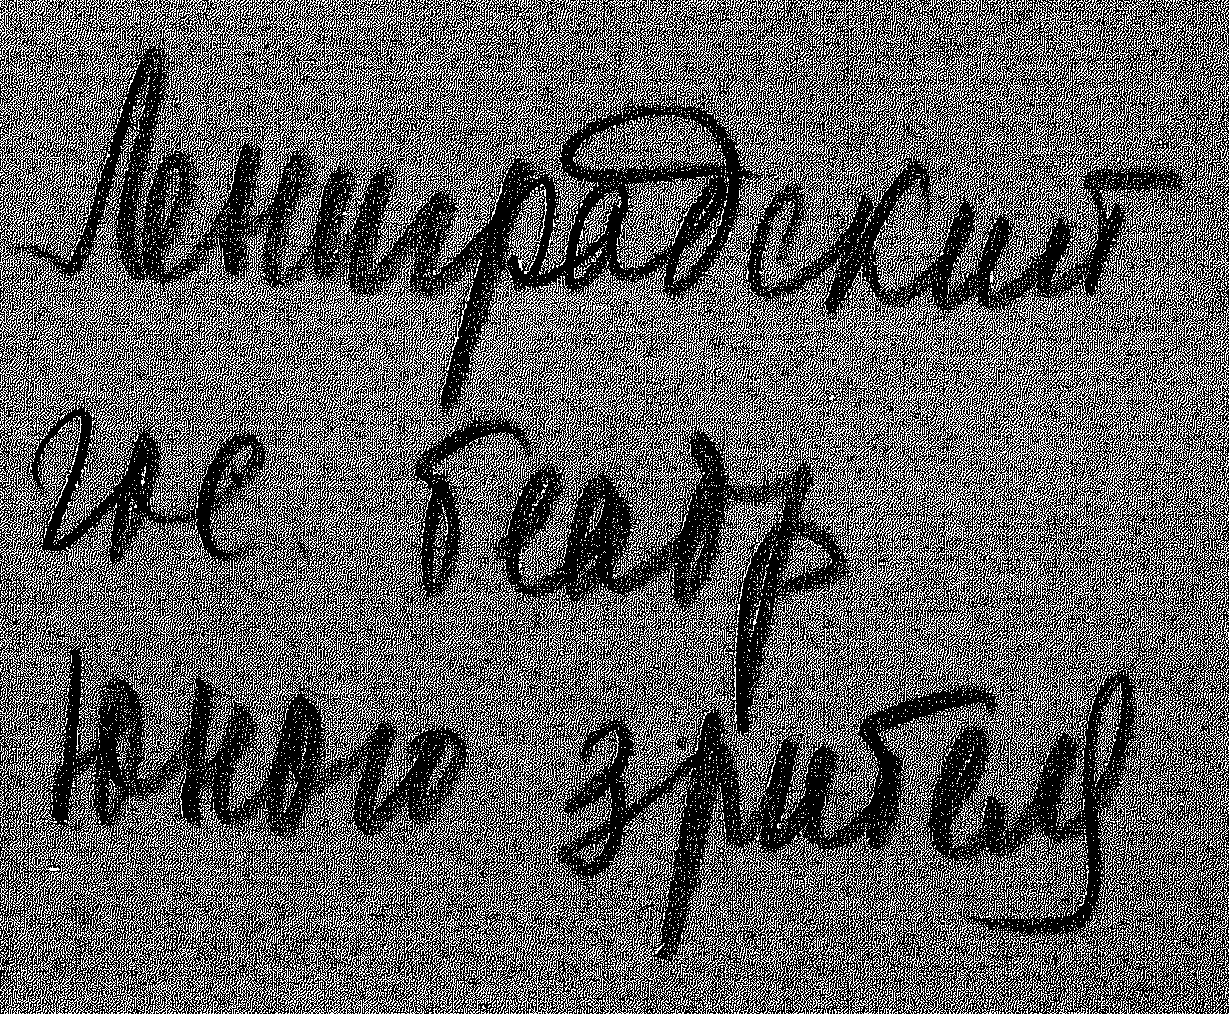 Ленинградский
театр
юного зрителя